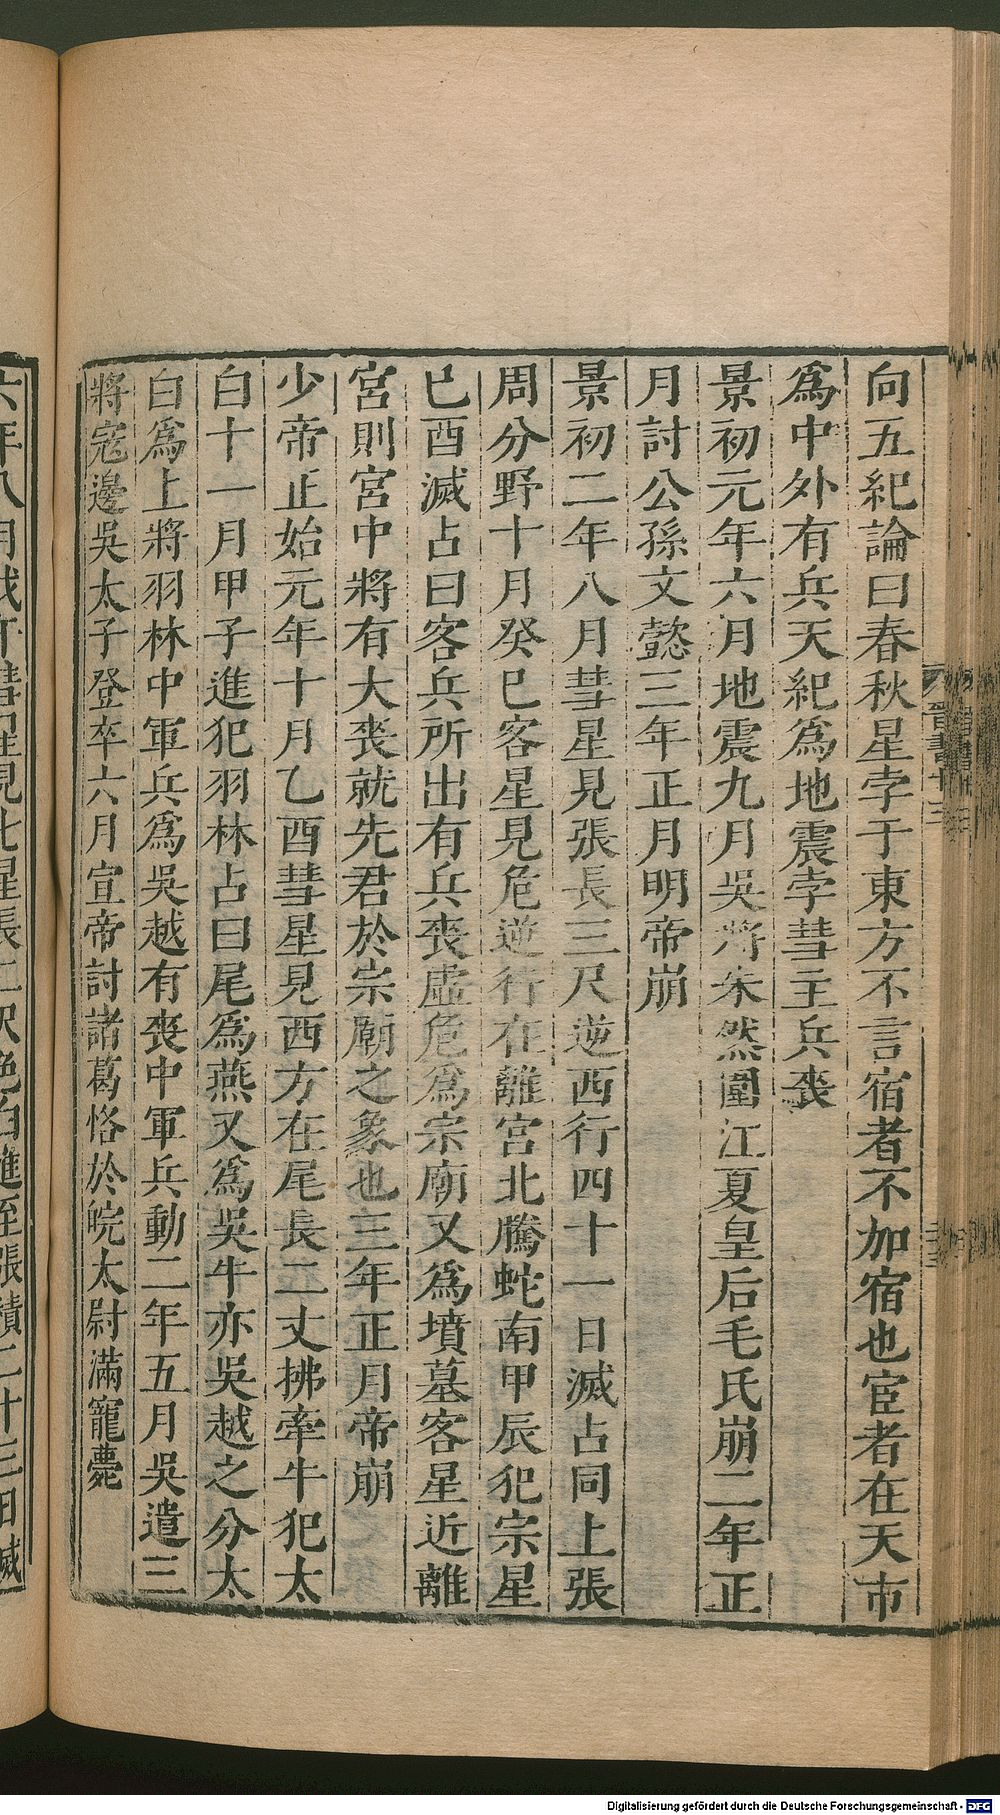 向五紀論曰春秋星孛于東方不言宿者不加宿也宦者在天市
爲中外有兵天紀爲地震孛彗主兵喪
景初元年六月地震九月吳將朱然圍江夏皇后毛氏崩二年正
月討公孫文懿三年正月明帝崩
景初二年八月彗星見張長三尺逆西行四十一日滅占同上張
周分野十月癸巳客星見危逆行在離宮北騰蛇南甲辰犯宗星
己酉滅占曰客兵所出有兵喪虛危爲宗廟又爲墳墓客星近離
宮則宮中將有大喪就先君於宗廟之象也三年正月帝崩
少帝正始元年十月乙酉彗星見西方在尾長二丈拂牽牛犯太
白十一月甲子進犯羽林占曰尾爲燕又爲吳牛亦吳越之分太
白爲上將羽林中軍兵爲吳越有喪中軍兵動二年五月吳遣三
將寇邊吳太子登卒六月宣帝討諸葛恪於皖太尉滿寵薨
六年八月戊午彗星見七星長二尺色白進至張積二十三日滅
晉書十三
Digitalisierung gefördert durch die Deutsche Forschungsgemeinschaft - DFG